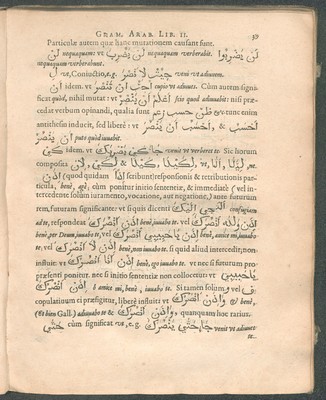 GRAM. ARAB. LIB. II.
Particulæ autem quæ hanc mutationem causant sunt.
لَنْ nequaquam: vt لَنْ يَضْرِبَ nequaquam verberabit. لَنْ يَضْرِبُوا
nequaquam verberabunt.
ve, Coniunctio, e.g. جِيْتُ لِأَنْصُرَ veni vt adiuvem.
أَنْ idem. vt أُحِبُّ أَنْ تَنْصُرَ cupio vt adiuves. Cùm autem signi-
ficat quòd, nihil mutat: vt أَعْلَمُ أَنْ يَنْصُرُ scio quòd adiuuabit: nisi præ-
cedat verbum opinandi, qualia sunt ظَنَّ حَسِبَ زَعَمَ &c tunc enim
antithesin inducit, sed liberè: vt أَحْسَبُ أَنْ يَنْصُرَ &, أَحْسَبُ
أَنْ يَنْصُرُ puto quòd iuuabit.
كَيْ idem. vt جَا كَيْ يَنْصُرَكَ venit vt adiuuet te. Sic horum
composita لِكَيْ & كَيْلَا & لِكَيْلَا, vt, لِأَنْ, لِئَلَّا, ne.
إِذَنْ (quod quidam إِذًا scribunt) responsionis & retributionis par-
ticula, benè, agè, cùm ponitur initio sententiæ, & immediatè (vel in-
tercedente solùm iuramento, vocatione, aut negatione,) ante futurum
rem, futuram significante: vt si quis dicenti أَلْتَجِي إِلَيْكَ confugiam
ad te, respondeat إِذَنْ أَنْصُرَكَ benè, iuuabo te. vel إِذَنْ وَاللهِ أَنْصُرَكَ
benè per Deum, iuuabo te, vel إِذَنْ يَا حَبِيبِي أَنْصُرَكَ benè, amice mi, iuuabo
te, vel إِذَنْ لَا أَنْصُرَكَ benè, non iuuabo te. si quid aliud intercedit, non
instituit: vt إِذَنْ إِنِّي أَنْصُرُكَ benè, ego iuuabo te. vt nec si futurum pro
præsenti poneret. nec si initio sententiæ non collocetur: vt يَا حَبِيبِي
إِذَنْ أَنْصُرُكَ ô amice mi, benè, iuuabo te. Si tamen solùm و vel ف
copulatiuum ei præfigitur, liberè instituit vt وَإِذَنْ أَنْصُرَكَ & benè,
(et bien Gall.) adiuuabo te & وَإِذَنْ أَنْصُرُكَ, quanquam hoc rariùs.
حَتَّى cùm significat vt, e.g. جَا حَتَّى يَنْصُرَكَ venit vt adiuuet
te.